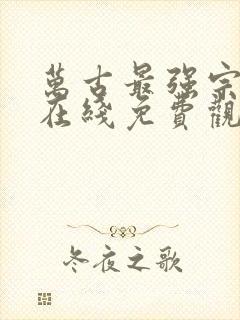 萬古最强宗
在綫免費觀
冬夜之歌